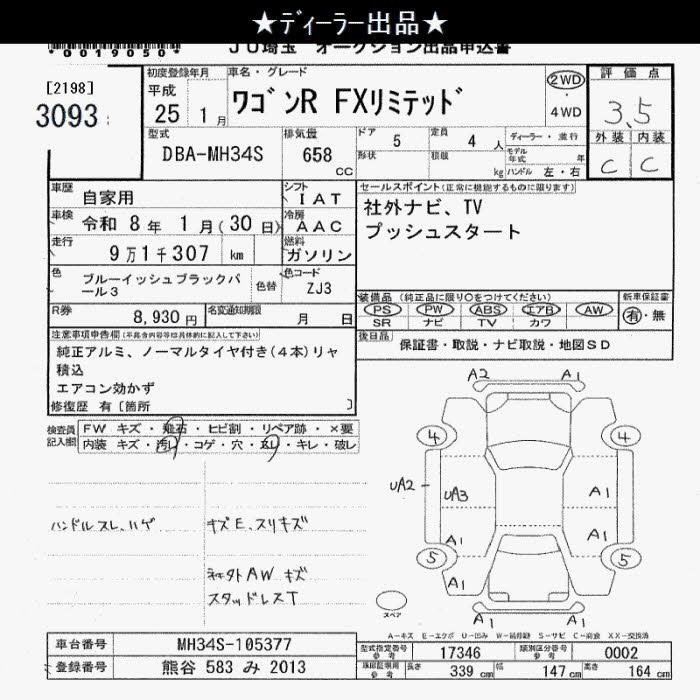 ★ディーラー出品★
*0019050*
JU埼玉 オークション出品申込書
[2198]
3093
初度登録年月
平成
25 1月
車名・グレード
ワゴンR FXリミテッド
2WD
・
4WD
評価点
3.5
外装 内装
C C
型式
DBA-MH34S
排気量
658
CC
ドア 5
形状
定員 4 人
積載 kg
ディーラー・並行
モデル年式 年
ハンドル 左・右
車歴
自家用
シフト
IAT
車検
令和 8年 1月(30日)
冷房
AAC
走行
9万1千307 km
燃料
ガソリン
色
ブルーイッシュブラックパール3
色替
色コード
ZJ3
R券
8,930円
名変通知期限
月 日
セールスポイント(正常に機能するものに限ります)
社外ナビ、TV
プッシュスタート
装備品(純正品に限り○をつけてください)
PS PW ABS エアB AW
SR ナビ TV カワ
新車保証書
有・無
後日品
保証書・取説・ナビ取説・地図SD
注意事項申告欄(不具合内容等は具体的に記入して下さい)
純正アルミ、ノーマルタイヤ付き(4本)リヤ
積込
エアコン効かず
修復歴 有[箇所 ]
検査員
記入欄
FW キズ・飛石・ヒビ割・リペア跡・×要
内装 キズ・汚れ・コゲ・穴・スレ・キレ・破し
ハンドルスレ、ハゲ
キズE、スリキズ
ネキタトAW キズ
スタッドレスT
A2 A1
4 4
UA2 - UA3
A1
A1
A1 A1
5 5
A1
A1 A1
スペア
A-キズ E-エクボ U-凹み W-補修跡 S-サビ C-腐食 XX-交換済
車台番号
MH34S-105377
登録番号
熊谷 583 み 2013
型式指定番号
参考
17346
類別区分番号
参考
0002
車庫証明用
参考
長さ 339 cm
幅 147 cm
高さ 164 cm